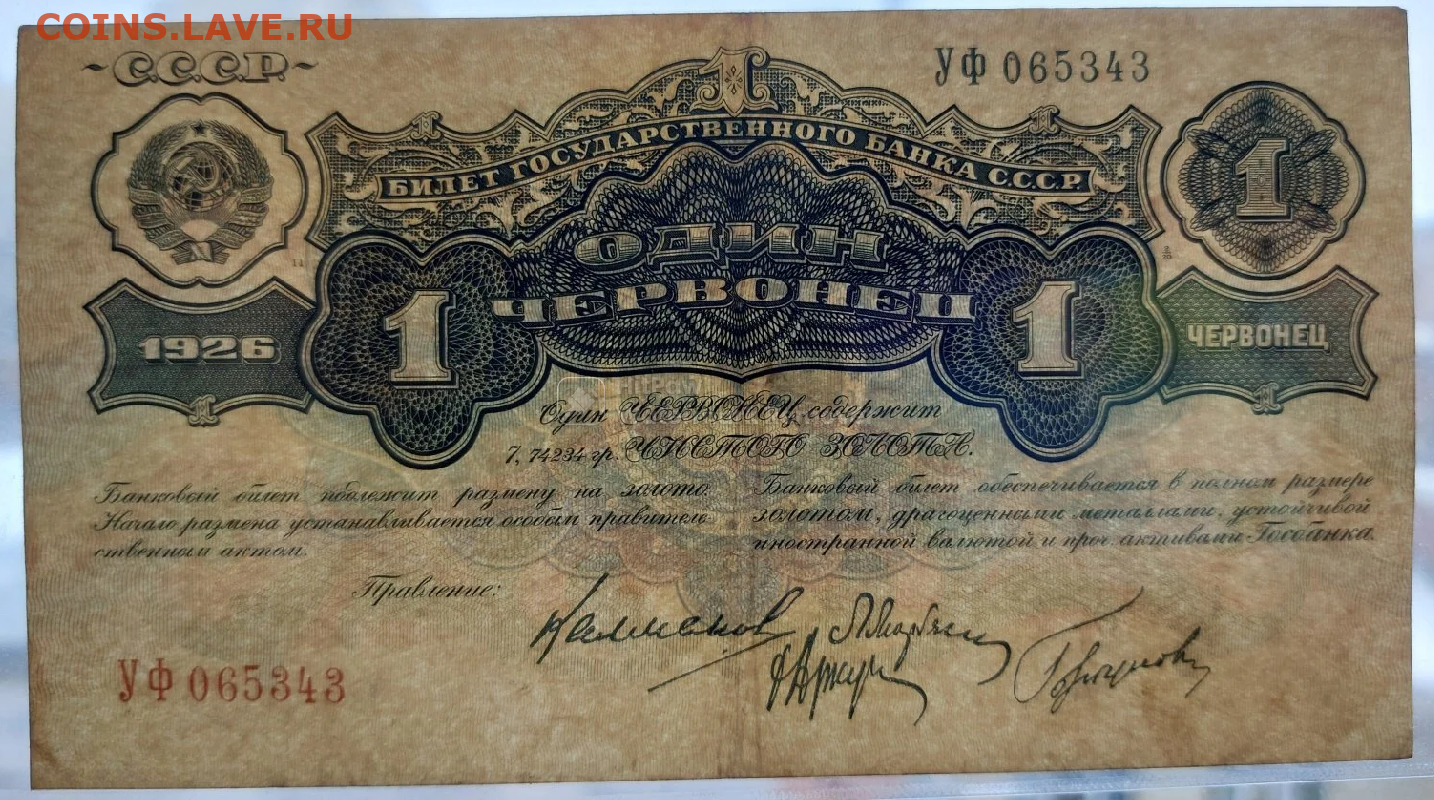 COINS.LAVE.RU
С.С.С.Р.
УФ 065343
1
БИЛЕТ ГОСУДАРСТВЕННОГО БАНКА С.С.С.Р.
1
1
1
ОДИН
ЧЕРВОНЕЦ
11
1
1
1926
ЧЕРВОНЕЦ
1
1
Один ЧЕРВОНЕЦ содержит
7,74234 гр. ЧИСТОГО ЗОЛОТА.
Банковый билет подлежит размену на золото.
Начало размена устанавливается особым правитель-
ственным актом.
Банковый билет обеспечивается в полном размере
золотом, драгоценными металлами, устойчивой
иностранной валютой и проч. активами Госбанка.
Правление:
УФ 065343